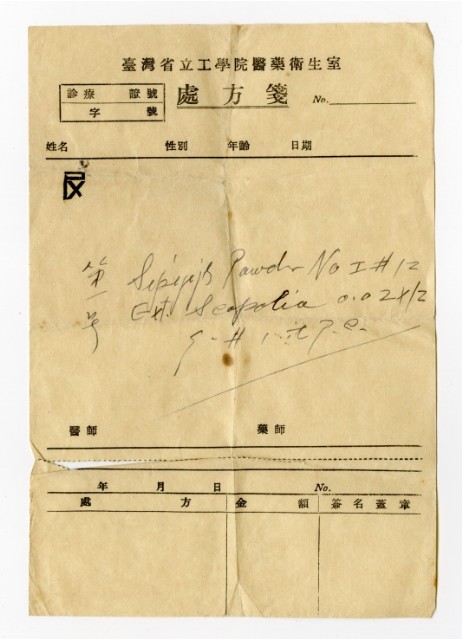 臺灣省立工學院醫藥衛生室
診療證號
字 號
處方箋
No.
姓名 性別 年齡 日期
第一号
Powder No I # 12
Ext. Scopolia 0.02 x 12
醫師 藥師
年 月 日 No.
處 方 金 額 簽名蓋章